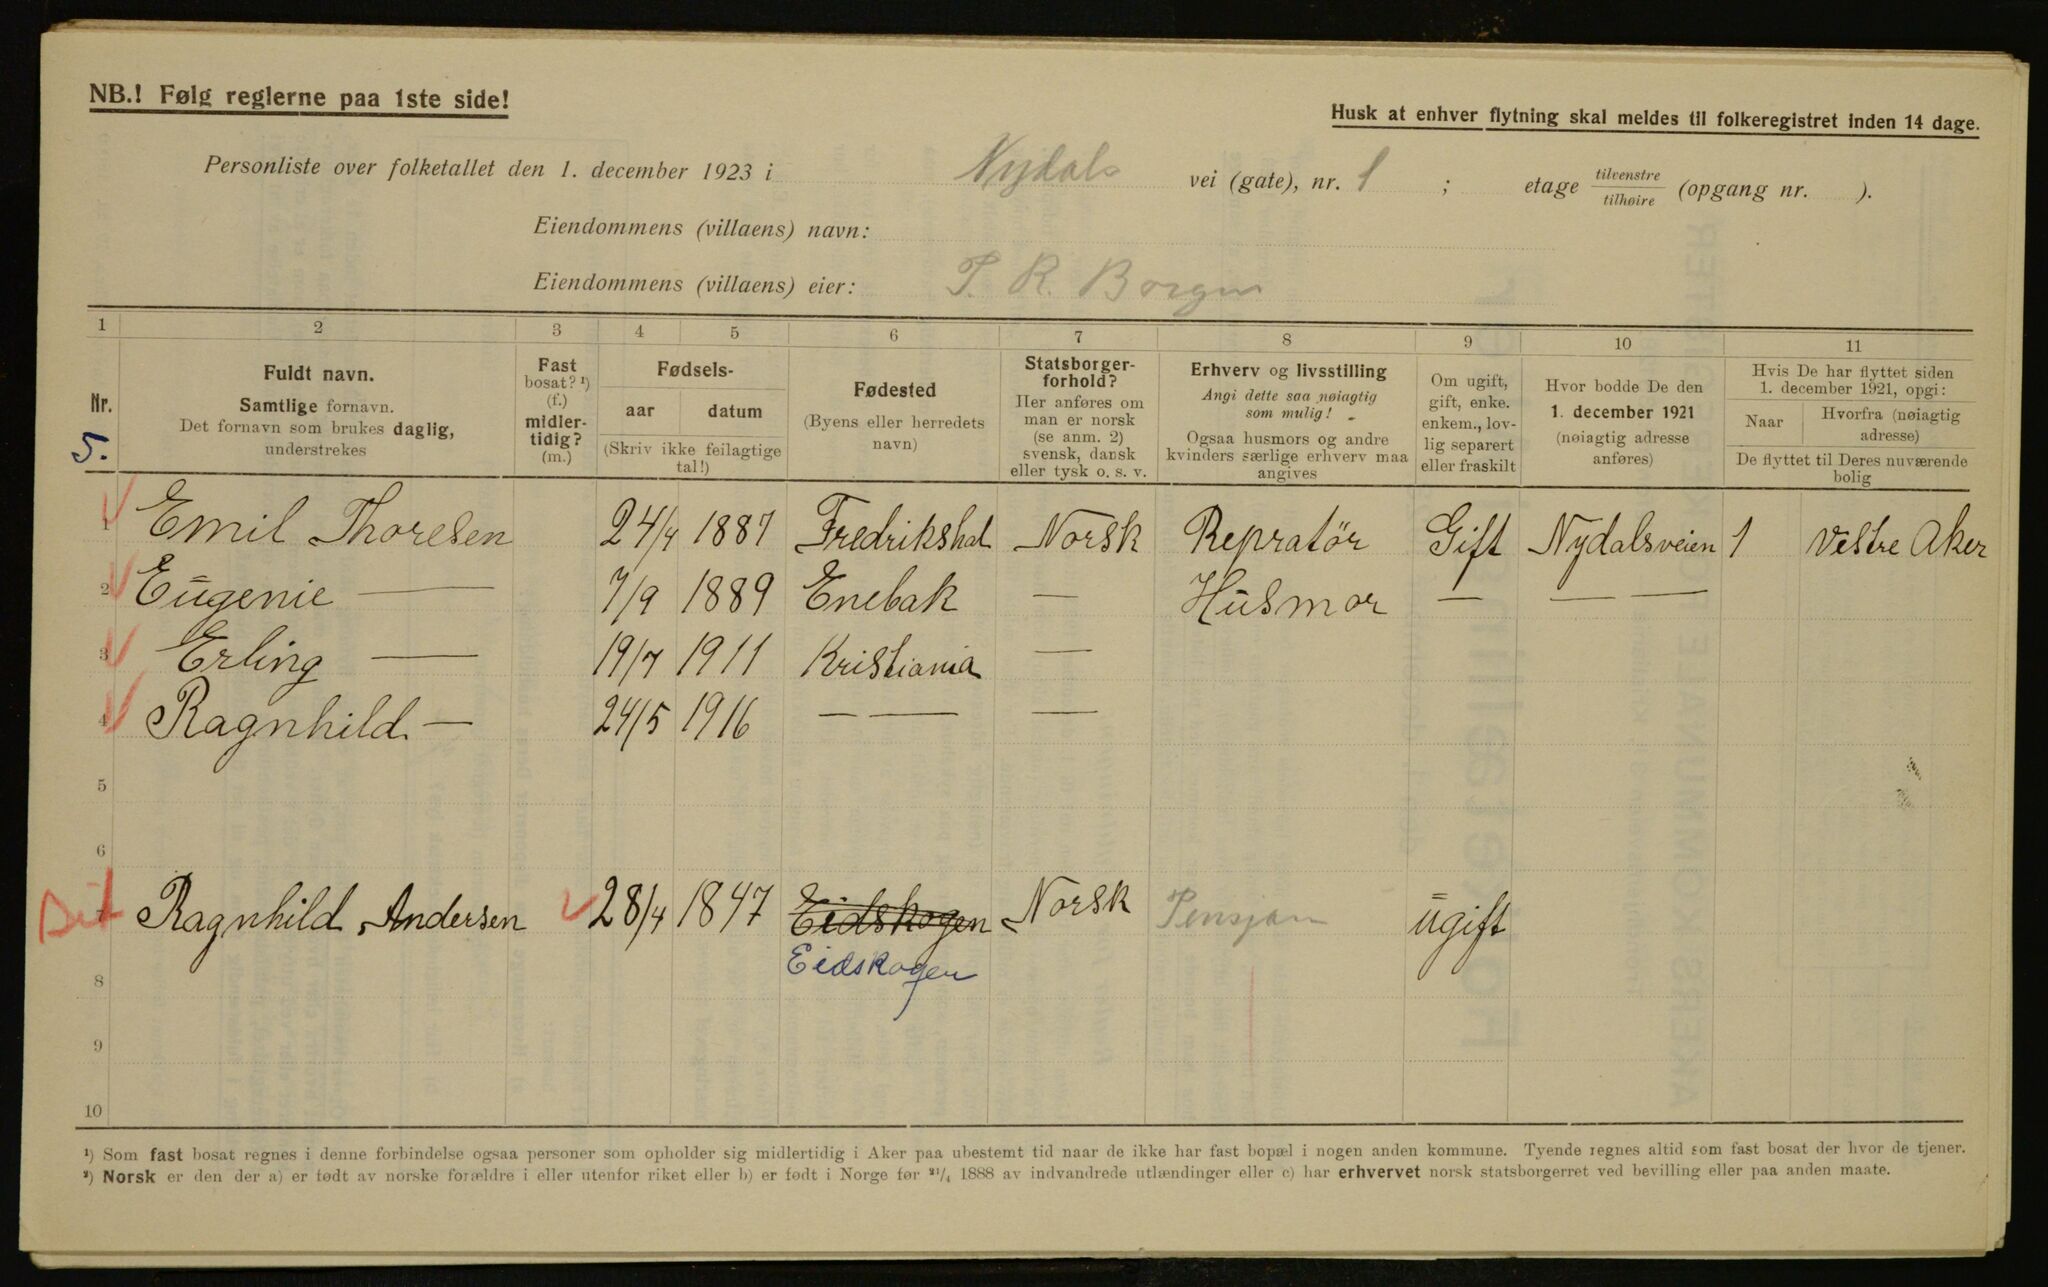 NB.! Følg reglerne paa 1ste side!
Husk at enhver flytning skal meldes til folkeregistret inden 14 dage.
Personliste over folketallet den 1. december 1923 i Nydals vei (gate), nr. 1 ; etage tilvenstre/tilhøire (opgang nr. ).
Eiendommens (villaens) navn:
Eiendommens (villaens) eier: T. R. Borgen
1 2 3 4 5 6 7 8 9 10 11
Nr.
5.
Fuldt navn.
Samtlige fornavn.
Det fornavn som brukes daglig,
understrekes
Fast
bosat? ¹)
(f.)
midler-
tidig?
(m.)
Fødsels-
aar datum
(Skriv ikke feilagtige
tal!)
Fødested
(Byens eller herredets
navn)
Statsborger-
forhold?
Her anføres om
man er norsk
(se anm. 2)
svensk, dansk
eller tysk o. s. v.
Erhverv og livsstilling
Angi dette saa nøiagtig
som mulig!
Ogsaa husmors og andre
kvinders særlige erhverv maa
angives
Om ugift,
gift, enke.
enkem., lov-
lig separert
eller fraskilt
Hvor bodde De den
1. december 1921
(nøiagtig adresse
anføres)
Hvis De har flyttet siden
1. december 1921, opgi:
Naar Hvorfra (nøiagtig
adresse)
De flyttet til Deres nuværende
bolig
1 Emil Thoresen 24/4 1887 Fredrikshal Norsk Repratør Gift Nydalsveien 1 Vestre Aker
2 Eugenie — 7/9 1889 Enebak — Husmor — — —
3 Erling — 19/7 1911 Kristiania —
4 Ragnhild — 24/5 1916 — — —
5
6
Ragnhild Andersen 28/4 1847 Eidskogen Norsk Pensjon ugift
Eidskogen
8
9
10
¹) Som fast bosat regnes i denne forbindelse ogsaa personer som opholder sig midlertidig i Aker paa ubestemt tid naar de ikke har fast bopæl i nogen anden kommune. Tyende regnes altid som fast bosat der hvor de tjener.
²) Norsk er den der a) er født av norske forældre i eller utenfor riket eller b) er født i Norge før ²¹/₄ 1888 av indvandrede utlændinger eller c) har erhvervet norsk statsborgerret ved bevilling eller paa anden maate.